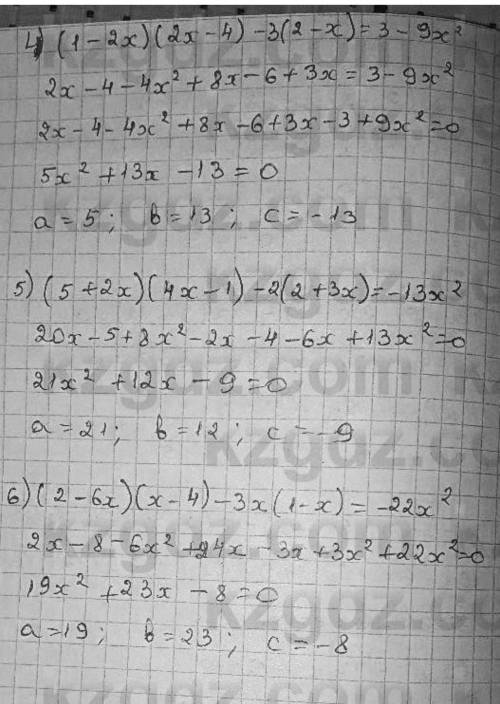 4) (1-2x)(2x-4)-3(2-x)=3-9x²
2x-4-4x²+8x-6+3x=3-9x²
2x-4-4x²+8x-6+3x-3+9x²=0
5x²+13x-13=0
a=5; b=13; c=-13
5) (5+2x)(4x-1)-2(2+3x)=-13x²
20x-5+8x²-2x-4-6x+13x²=0
21x²+12x-9=0
a=21; b=12; c=-9
6) (2-6x)(x-4)-3x(1-x)=-22x²
2x-8-6x²+24x-3x+3x²+22x²=0
19x²+23x-8=0
a=19; b=23; c=-8